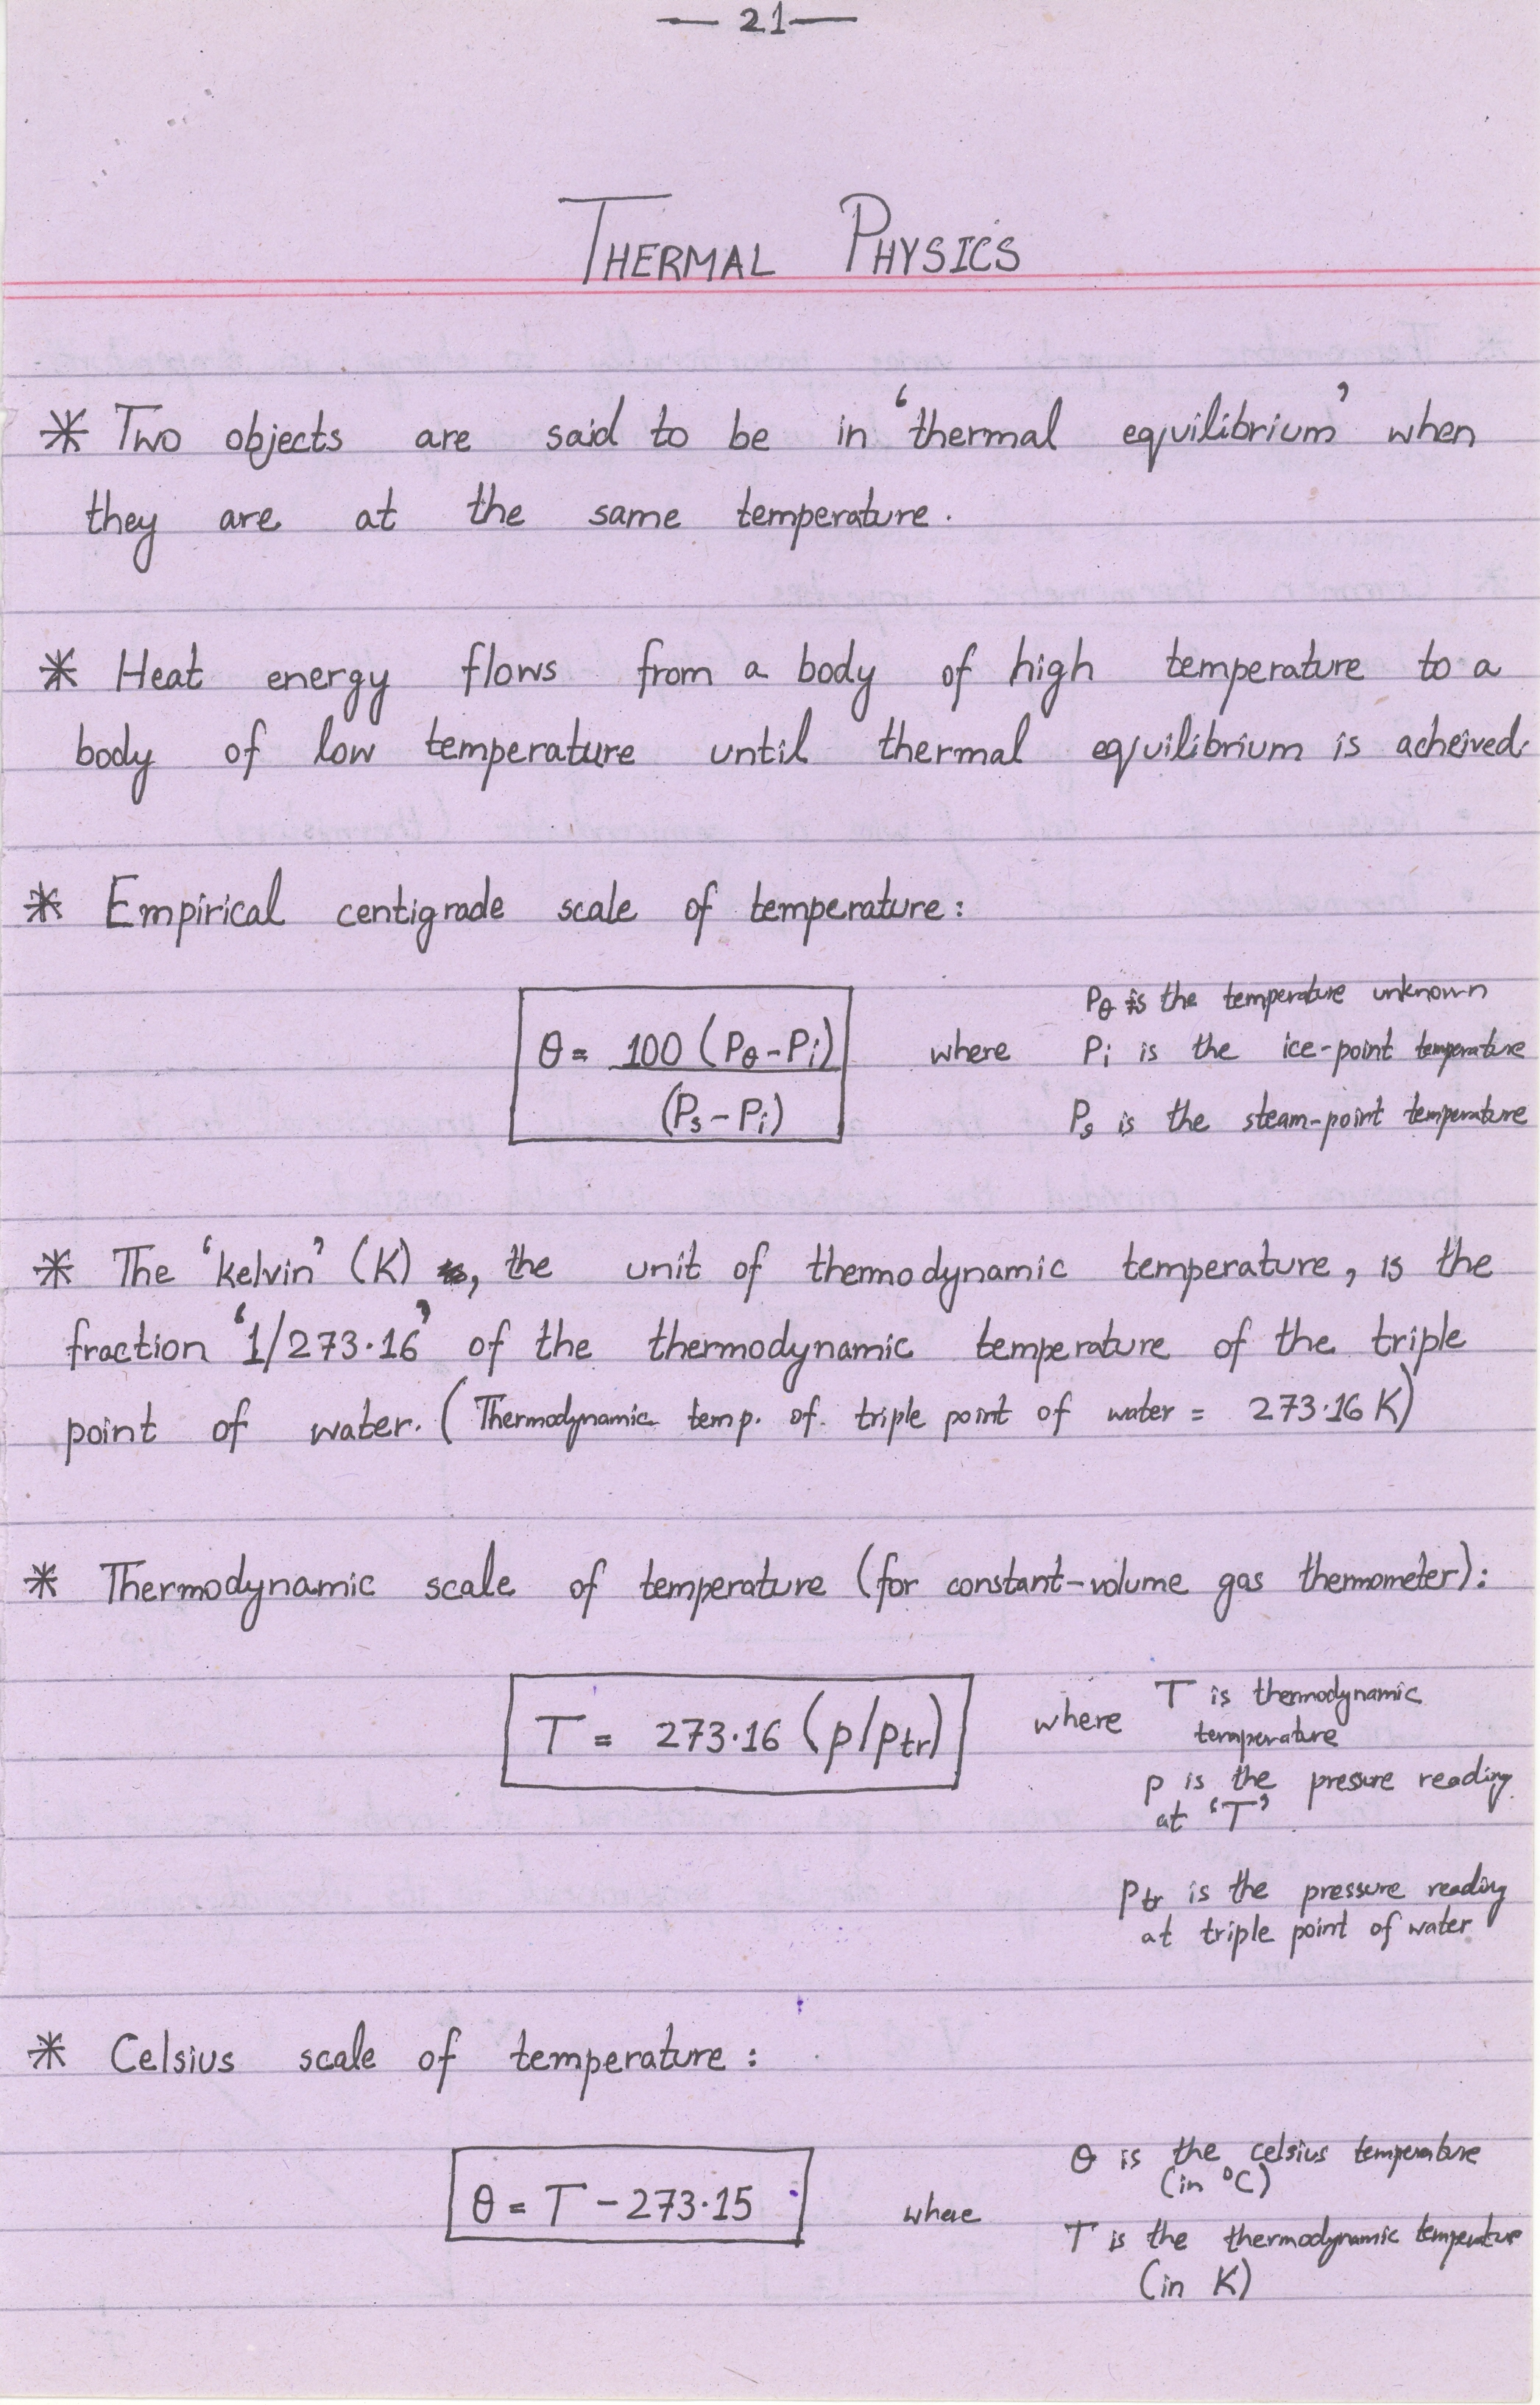 — 21 —
THERMAL PHYSICS
* Two objects are said to be in ‘thermal equilibrium’ when
they are at the same temperature.
* Heat energy flows from a body of high temperature to a
body of low temperature until thermal equilibrium is acheived.
* Empirical centigrade scale of temperature:
θ = 100 (Pθ - Pi) / (Ps - Pi) where
Pθ is the temperature unknown
Pi is the ice-point temperature
Ps is the steam-point temperature
* The ‘kelvin’ (K), the unit of thermodynamic temperature, is the
fraction ‘1/273.16’ of the thermodynamic temperature of the triple
point of water. (Thermodynamic temp. of. triple point of water = 273.16 K)
* Thermodynamic scale of temperature (for constant-volume gas thermometer):
T = 273.16 (p/ptr) where
T is thermodynamic
temperature
p is the presure reading
at ‘T’
ptr is the pressure reading
at triple point of water
* Celsius scale of temperature:
θ = T - 273.15 where
θ is the celsius temperature
(in °C)
T is the thermodynamic temperature
(in K)